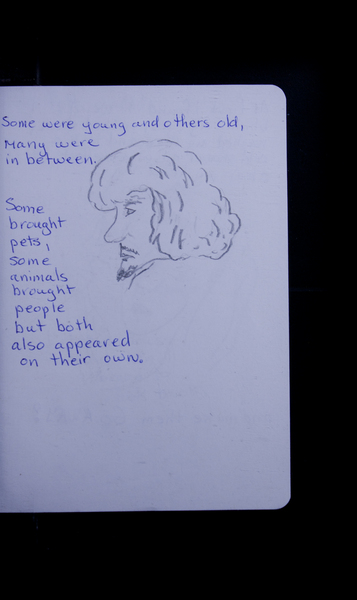 Some were young and others old,
Many were
in between.
Some
brought
pets,
some
animals
brought
people
but both
also appeared
on their own.